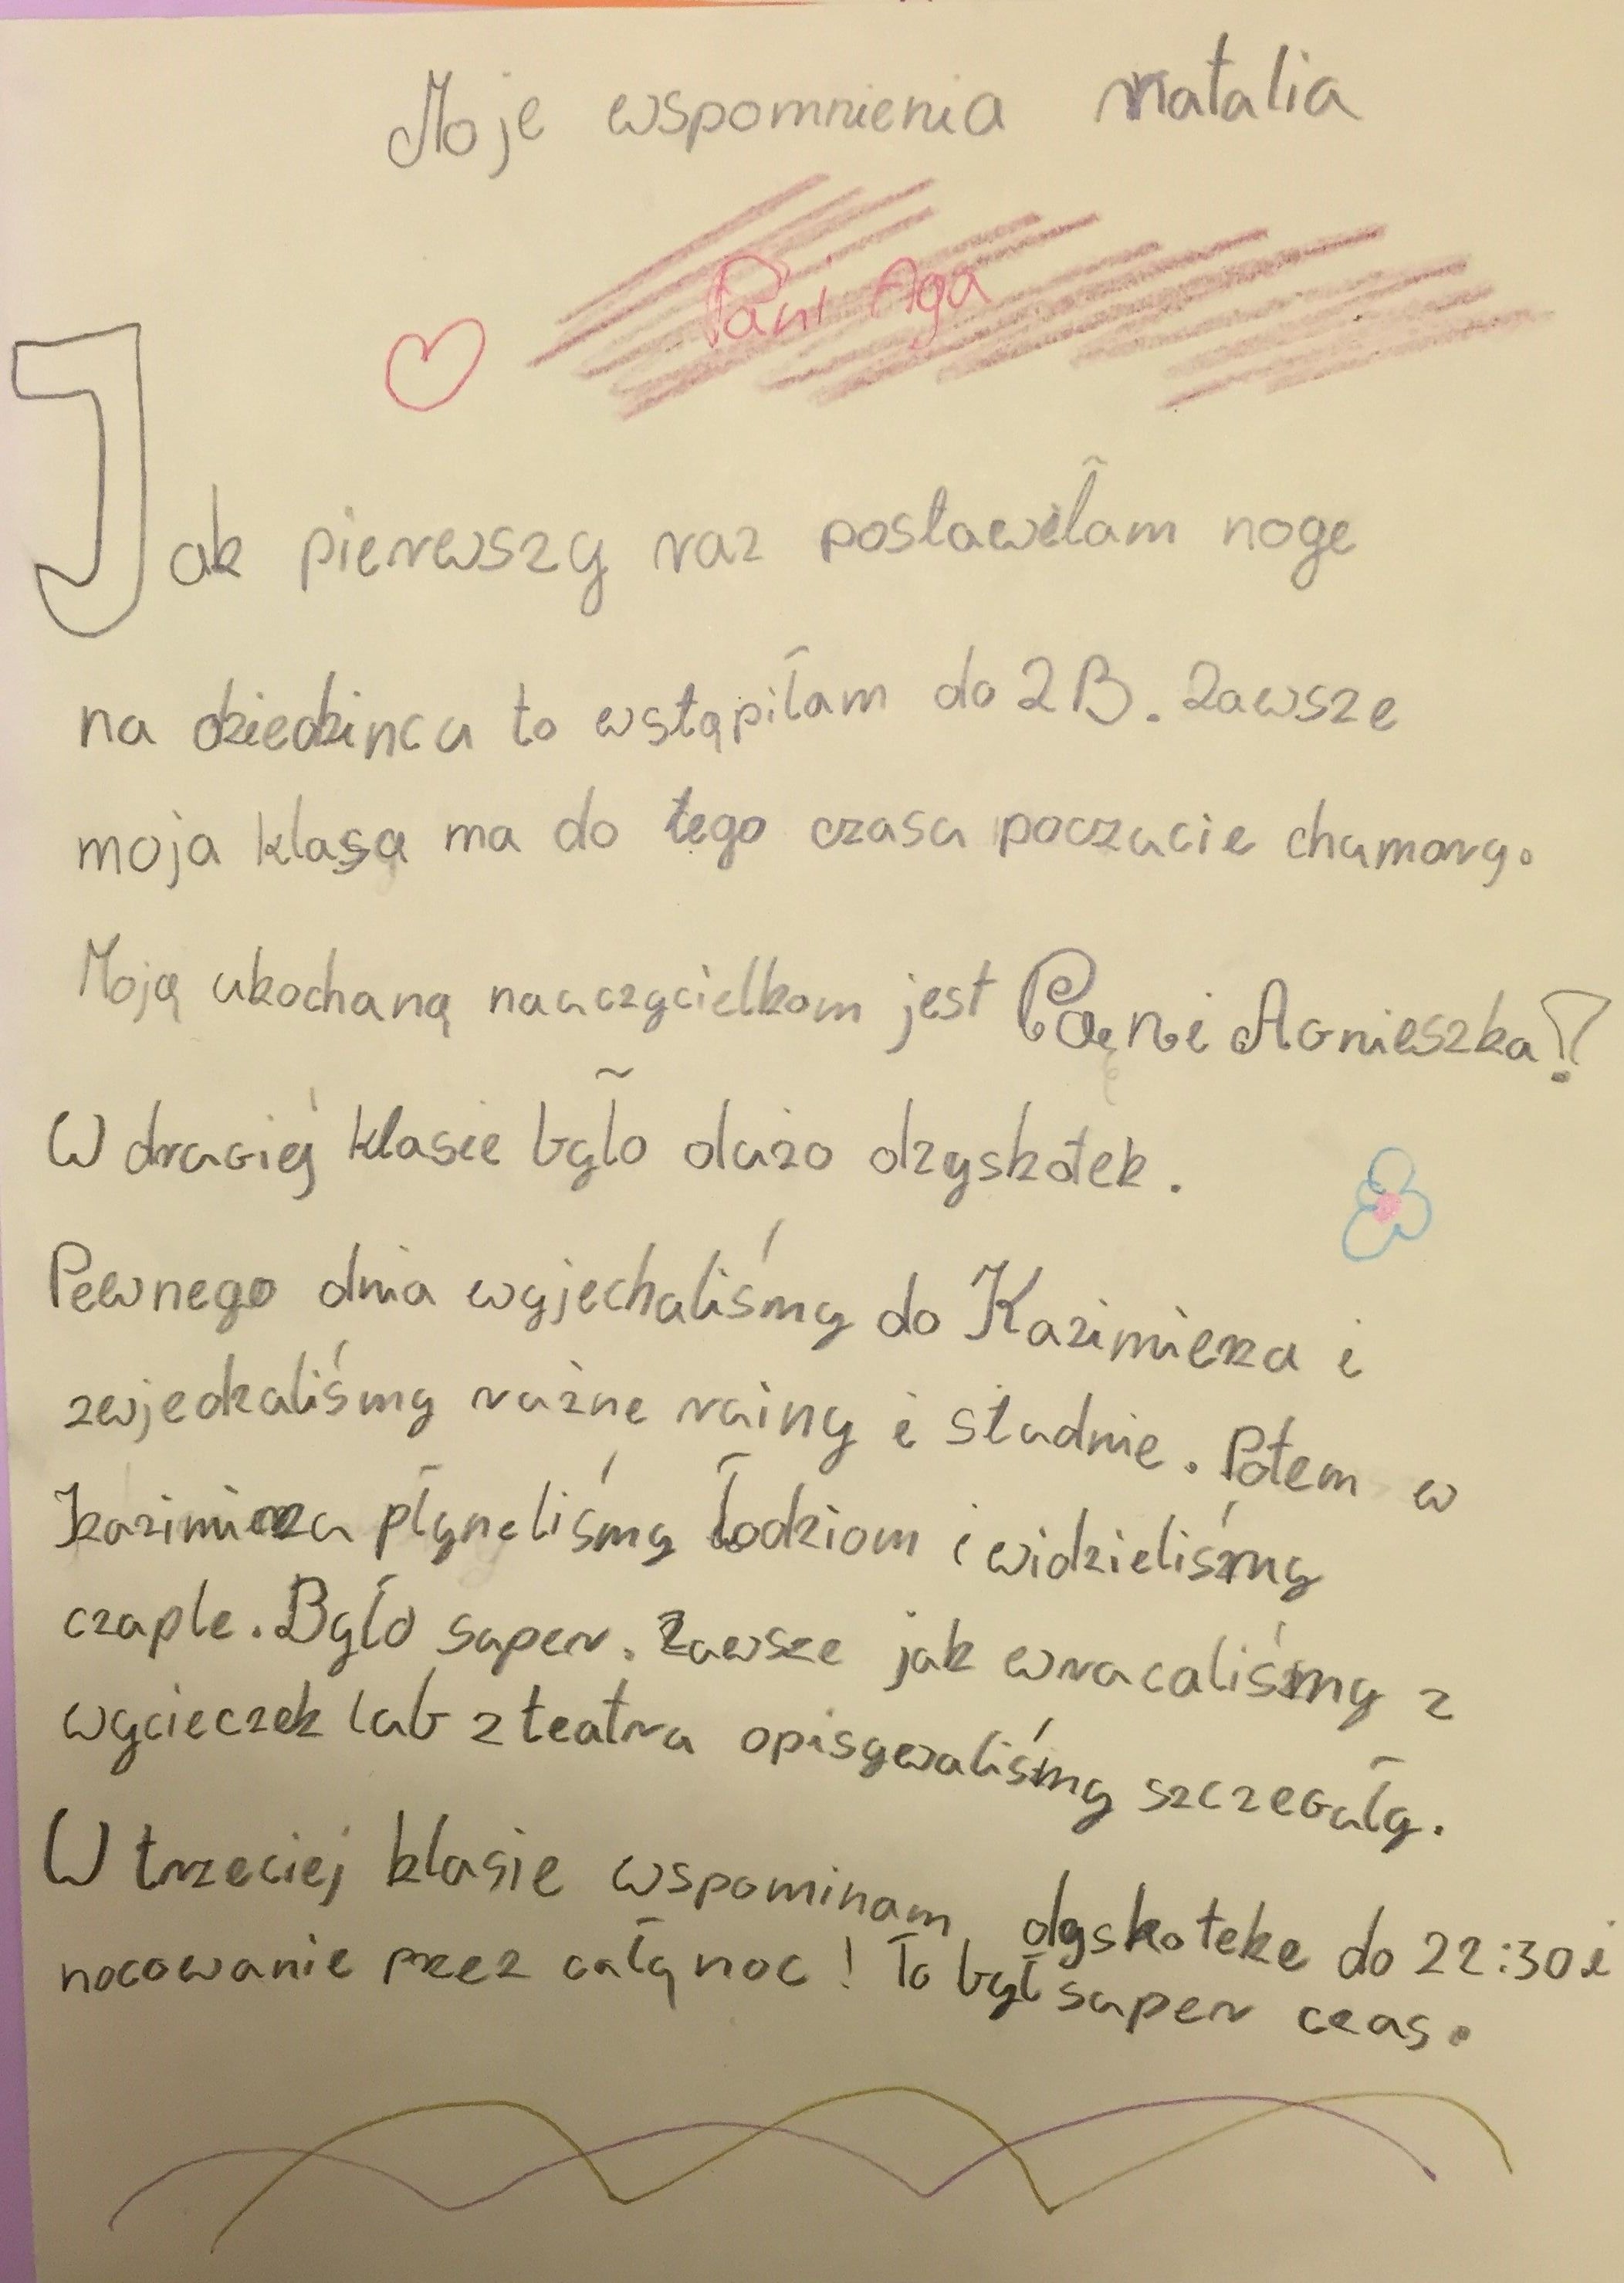 Moje wspomnienia Natalia
Pani Aga
Jak pierwszy raz postawiłam noge
na dziedzincu to wstąpiłam do 2B. Zawsze
moja klasa ma do tego czasu poczucie chumoru.
Moją ukochaną nauczycielkom jest Pani Agnieszka!
W drugiej klasie było dużo dzyskotek.
Pewnego dnia wyjechaliśmy do Kazimierza i
zwjedzaliśmy rużne ruiny i studnie. Potem w
kazimierzu płyneliśmy łodziom i widzieliśmy
czaple. Było super. Zawsze jak wracaliśmy z
wycieczek lub z teatru opisywaliśmy szczeguły.
W trzeciej klasie wspominam dyskoteke do 22:30 i
nocowanie przez całą noc! To był super czas.